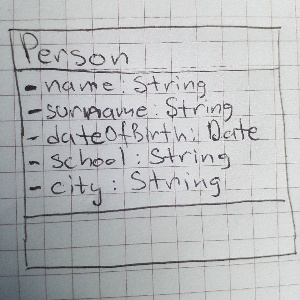 Person
- name : String
- surname : String
- dateOfBirth : Date
- school : String
- city : String